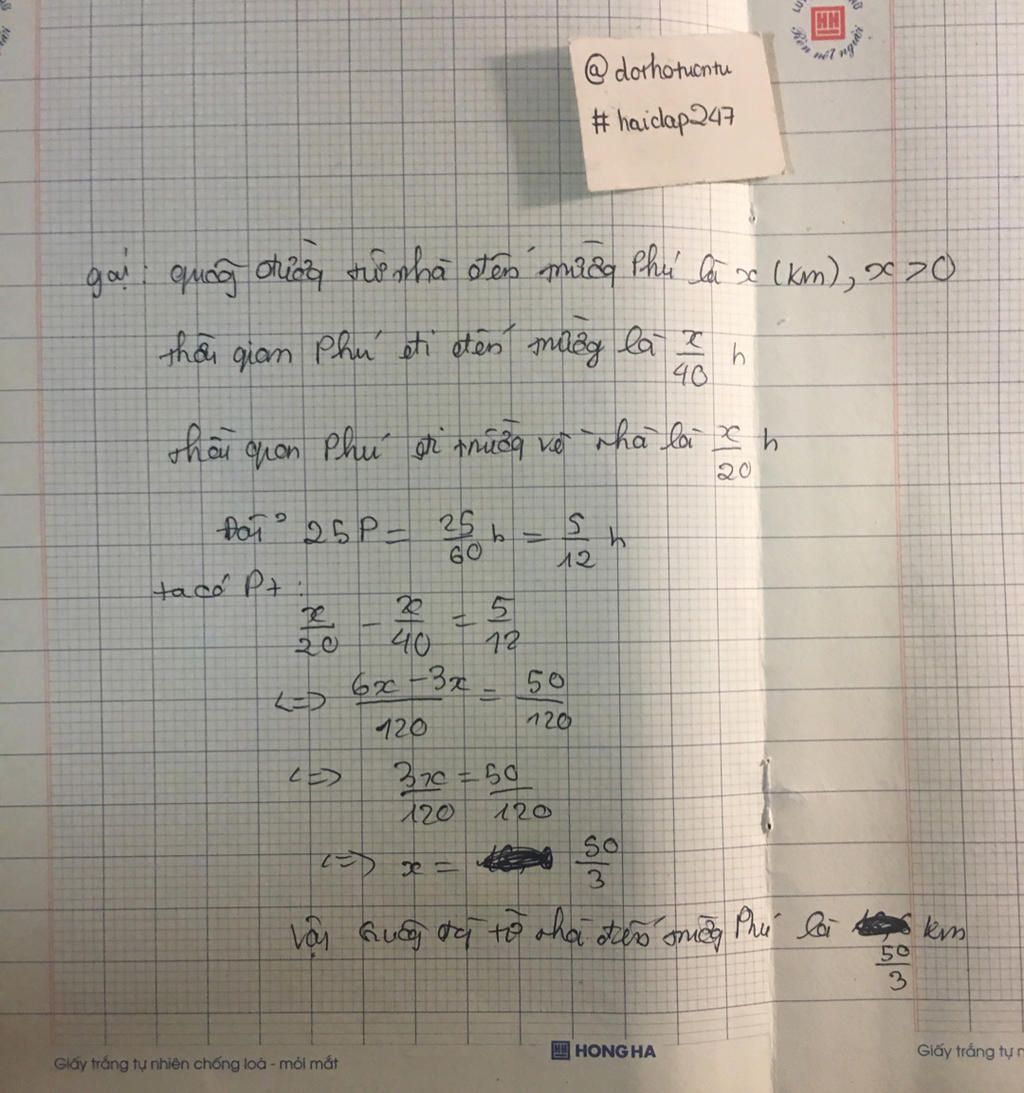 @dorhotucntu
#haidap247
Rèn nét người
gọi: quãg đườg từ nhà đến trườg Phú là x (km), x > 0
thời gian Phú đi đến trườg là x/40 h
thời gian Phú đi trườg về nhà là x/20 h
Đổi 25P = 25/60 h = 5/12 h
ta có Pt:
x/20 - x/40 = 5/12
<=> 6x - 3x/120 = 50/120
<=> 3x/120 = 50/120
<=> x = 50/3
Vậy quãg từ nhà đến trườg Phú là 50/3 km
Giấy trắng tự nhiên chống loá - mỏi mắt
HONG HA
Giấy trắng tự n